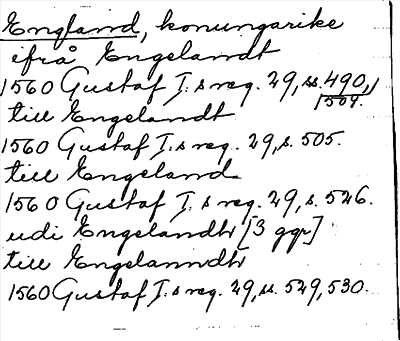 England, konungarike
ifrå Engelandt
1560 Gustaf I:s reg. 29, ss. 490,
1504.
till Engelandt
1560 Gustaf I:s reg. 29, s. 505.
till Engeland
1560 Gustaf I:s reg. 29, s. 526.
udi Engelandh [3 ggr]
till Engelanndh
1560 Gustaf I:s reg. 29, ss. 529, 530.